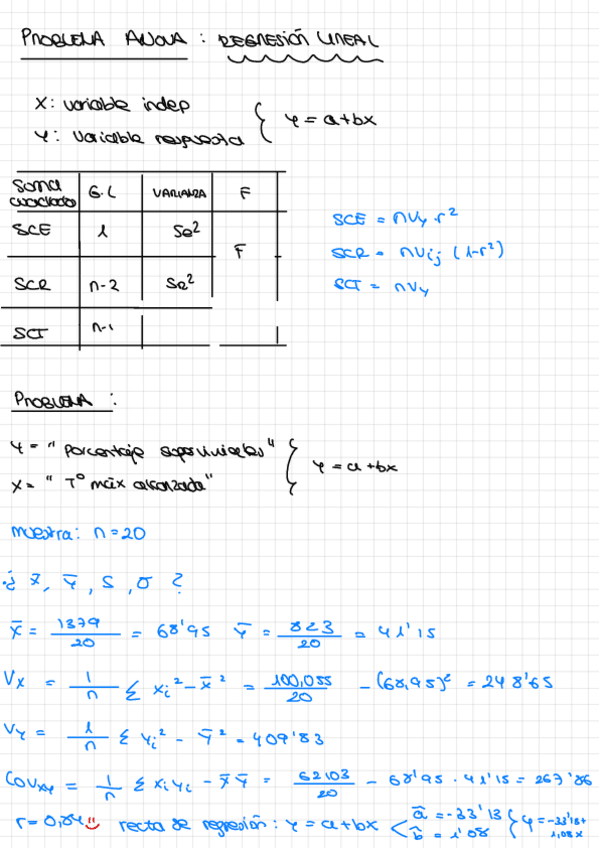 PROBLEMA ANOVA : REGRESIÓN LINEAL
X: variable indep
Y: variable respuesta
Y = a+bx
Soma cuadrados G.L VARIANZA F
SCE 1 Se²
F
SCR n-2 Se²
SCT n-1
SCE = nVy · r²
SCR = nVij (1-r²)
SCT = nVy
PROBLEMA :
Y = " Porcentaje supervivientes "
X = " Tº máx alcanzada "
Y = a+bx
muestra: n=20
¿ x̄, Ȳ, S, σ ?
X̄ = 1379/20 = 68'95 Ȳ = 823/20 = 41'15
Vx = 1/n Σ xi² - x̄² = 100,055/20 - (68,95)² = 248'65
Vy = 1/n Σ yi² - Ȳ² = 409'83
Covxy = 1/n Σ xiyi - x̄ȳ = 62103/20 - 68'95 · 41'15 = 267'86
r = 0,84 recta de regresión : Y = a+bx
â = -33'13
b̂ = 1'08
Y = -33'13+
1,08x